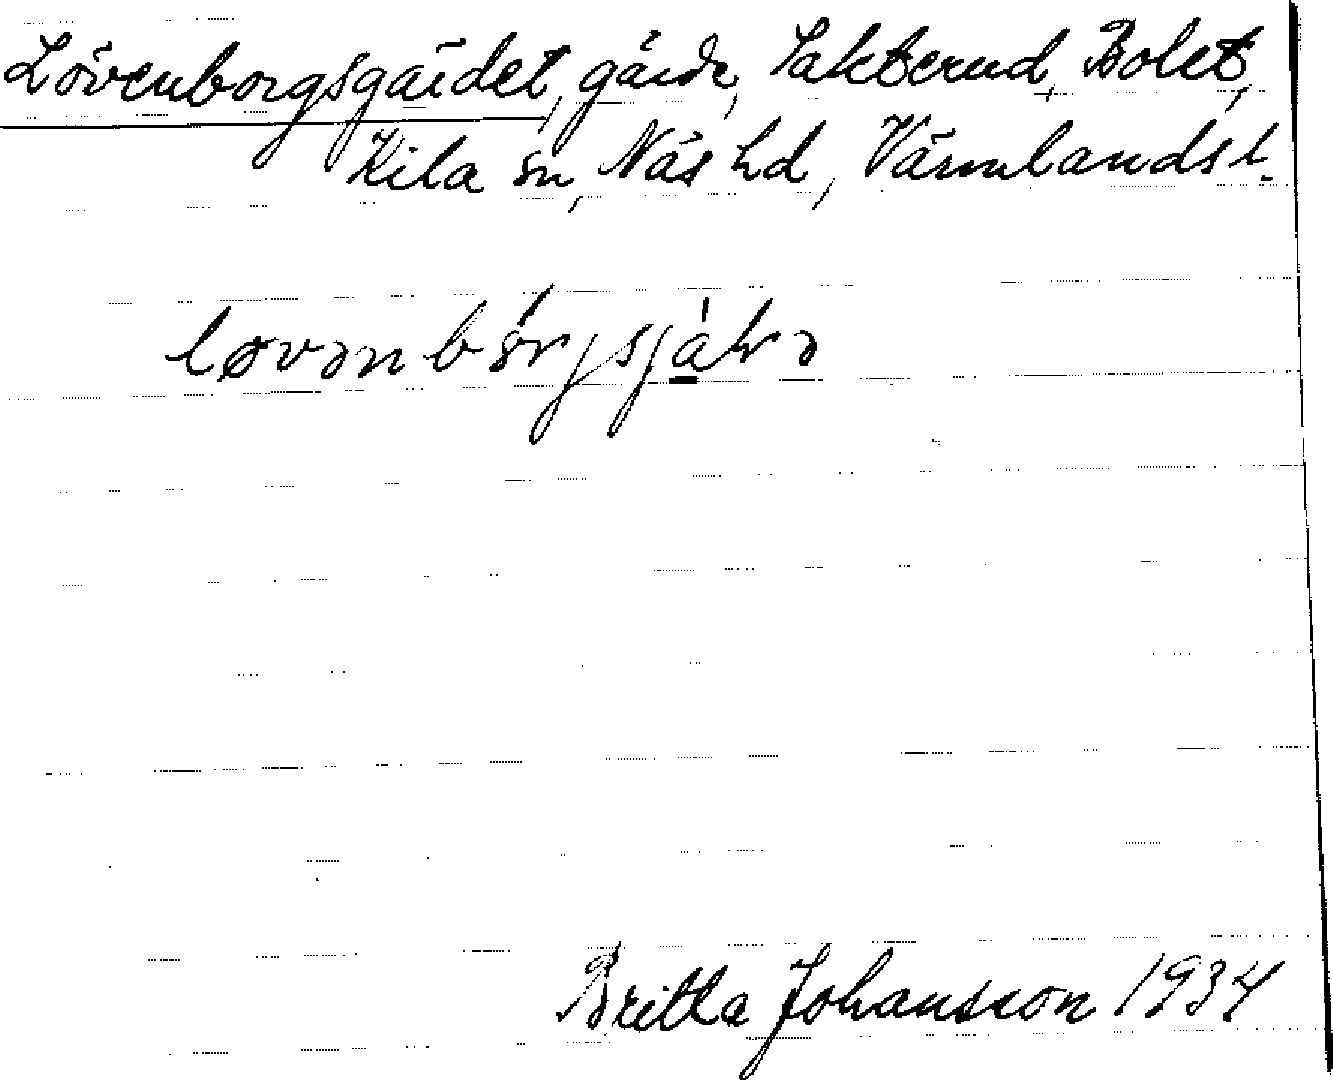 Lövenborgsgärdet, gärde, Takterud, Bolet,
Kila sn, Näs hd, Värmlands l.
Britta Johansson 1934